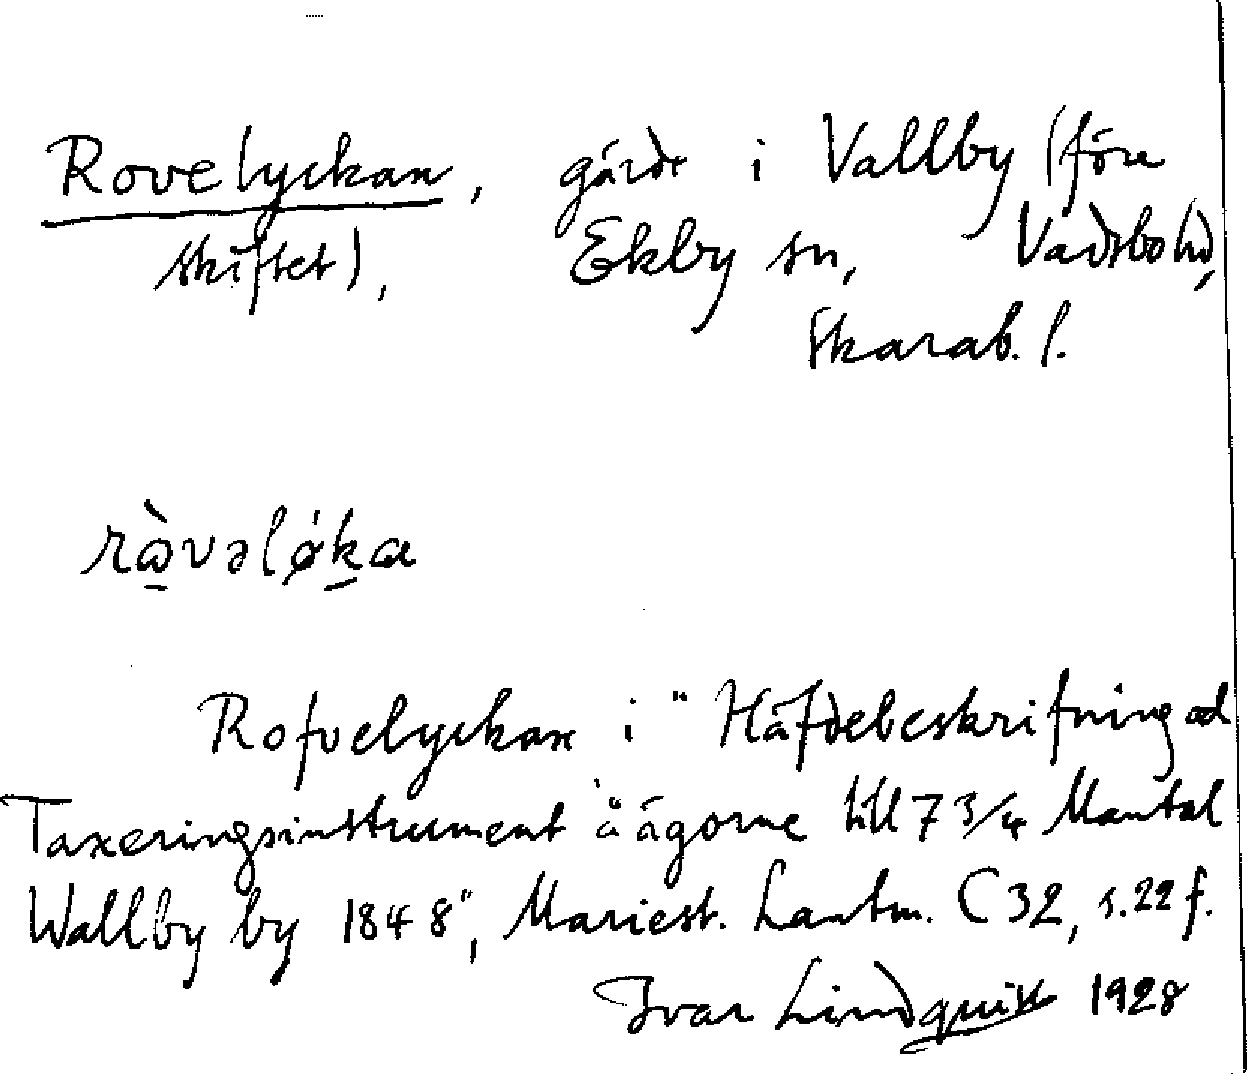 Rovelyckan, gärde i Vallby (före
skiftet), Ekby sn, Vadsbo hd,
Skarab. l.
ròvəløka
Rofvelyckan i "Häfdebeskrifning och
Taxeringsinstrument å ägorne till 7 3/4 Mantal
Wallby by 1848", Mariest. Lantm. C 32, s. 22 f.
Ivar Lindquist 1928